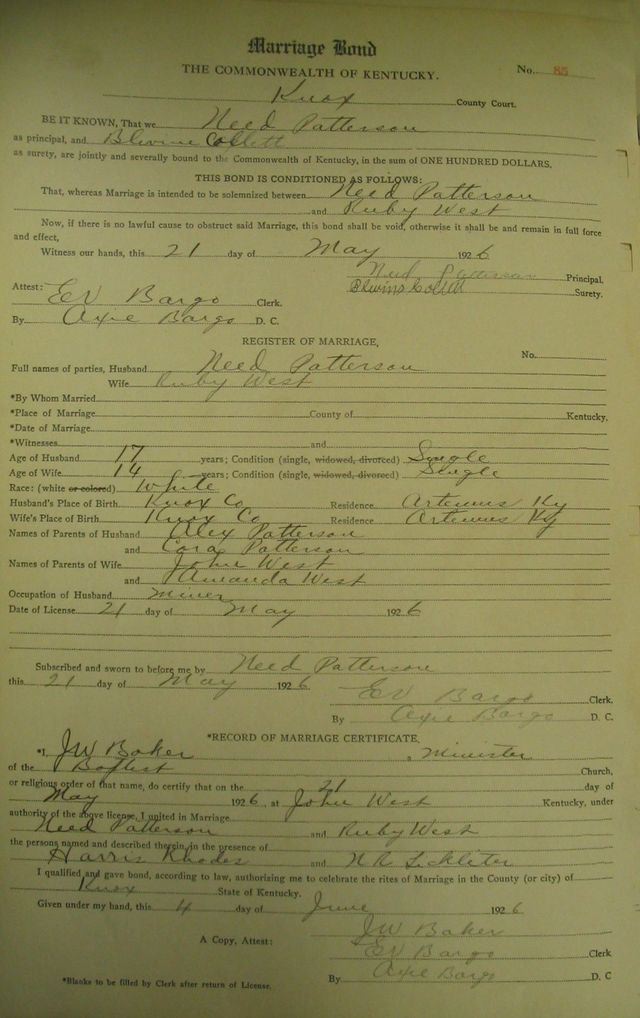 Marriage Bond
THE COMMONWEALTH OF KENTUCKY.
No. 85
Knox County Court.
BE IT KNOWN, That we Need Patterson
as principal, and Collett
as surety, are jointly and severally bound to the Commonwealth of Kentucky, in the sum of ONE HUNDRED DOLLARS.
THIS BOND IS CONDITIONED AS FOLLOWS:
That, whereas Marriage is intended to be solemnized between Need Patterson
and Ruby West
Now, if there is no lawful cause to obstruct said Marriage, this bond shall be void, otherwise it shall be and remain in full force
and effect,
Witness our hands, this 21 day of May 1926
Need Patterson Principal.
Attest: EV Bargo Clerk. Collett Surety.
By Axie Bargo D. C.
REGISTER OF MARRIAGE,
No.
Full names of parties, Husband Need Patterson
Wife Ruby West
*By Whom Married
*Place of Marriage County of Kentucky.
*Date of Marriage
*Witnesses and
Age of Husband 17 years; Condition (single, widowed, divorced) Single
Age of Wife 14 years; Condition (single, widowed, divorced) Single
Race: (white or colored) White
Husband's Place of Birth Knox Co Residence Artemus Ky
Wife's Place of Birth Knox Co Residence Artemus Ky
Names of Parents of Husband Alex Patterson
and Cora Patterson
Names of Parents of Wife John West
and Amanda West
Occupation of Husband Miner
Date of License 21 day of May 1926
Subscribed and sworn to before me by Need Patterson
this 21 day of May 1926
EV Bargo Clerk.
By Axie Bargo D. C.
*RECORD OF MARRIAGE CERTIFICATE.
*I, JW Baker, Minister
of the Baptist Church,
or religious order of that name, do certify that on the 21 day of
May 1926, at John West Kentucky, under
authority of the above license, I united in Marriage
Need Patterson and Ruby West
the persons named and described therein, in the presence of
Harris Rhodes and
I qualified and gave bond, according to law, authorizing me to celebrate the rites of Marriage in the County (or city) of
Knox State of Kentucky.
Given under my hand, this 4 day of June 1926
JW Baker
A Copy, Attest: EV Bargo Clerk
By Axie Bargo D. C
*Blanks to be filled by Clerk after return of License.